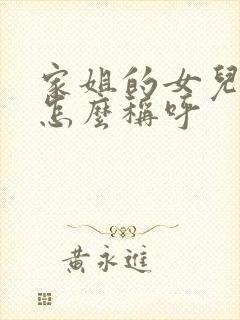 家姐的女兒
怎麼稱呼
黃永進